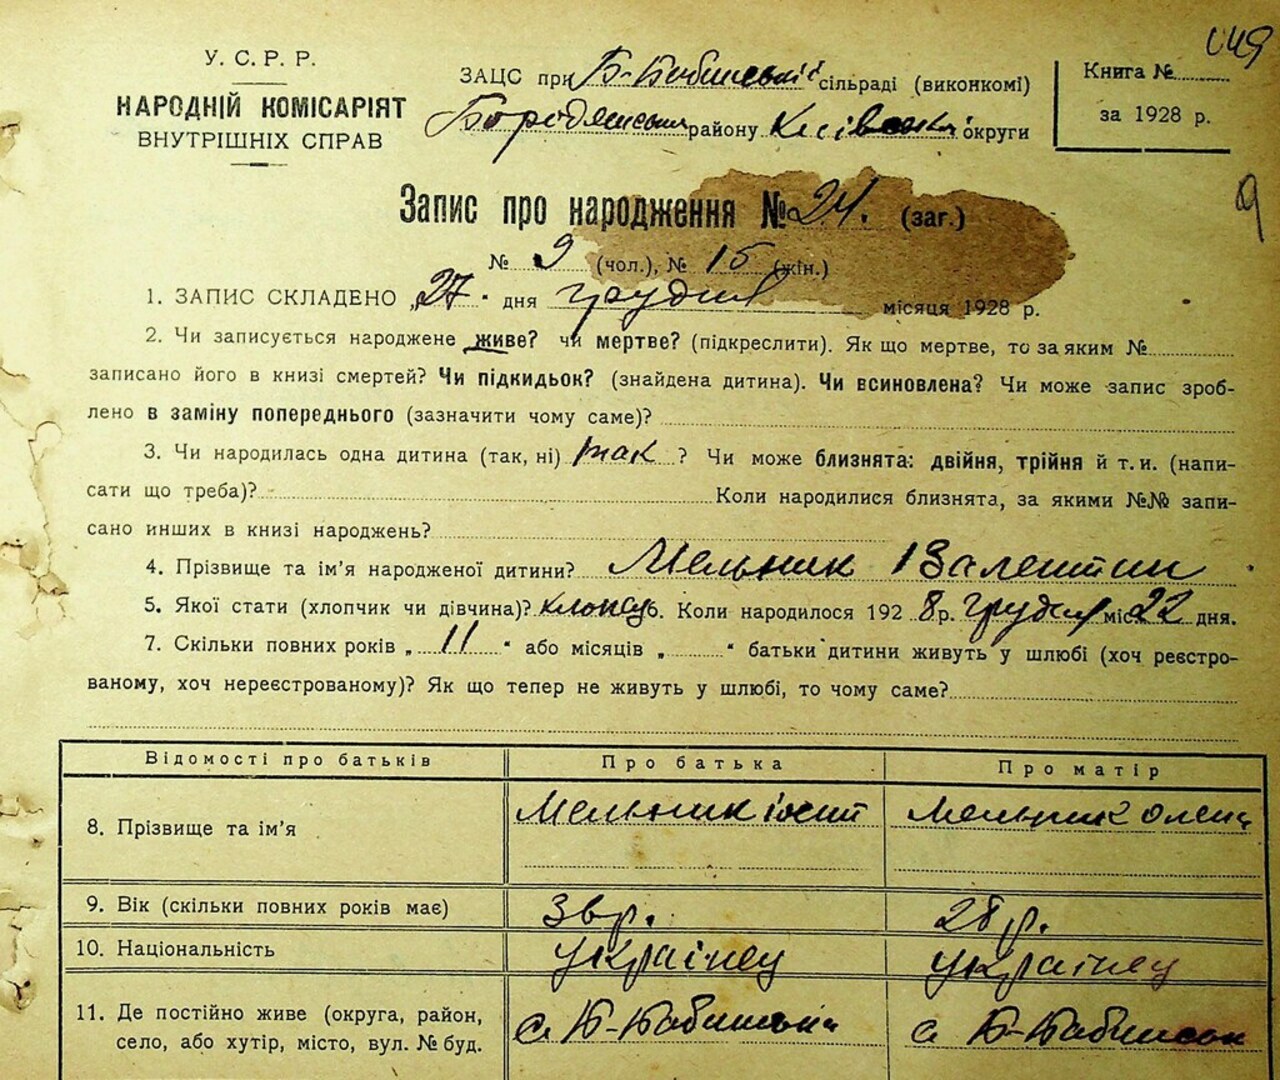 У. С. Р. Р.
НАРОДНІЙ КОМІСАРІЯТ
ВНУТРІШНІХ СПРАВ
ЗАЦС при Б-Бабинській сільраді (виконкомі)
Бородянського району Київської округи
Книга №
за 1928 р.
049
9
Запис про народження № 24. (заг.)
№ 9 (чол.), № 15 (жін.)
1. ЗАПИС СКЛАДЕНО „27" дня грудня місяця 1928 р.
2. Чи записується народжене живе? чи мертве? (підкреслити). Як що мертве, то за яким №
записано його в книзі смертей? Чи підкидьок? (знайдена дитина). Чи всиновлена? Чи може запис зроб-
лено в заміну попереднього (зазначити чому саме)?
3. Чи народилась одна дитина (так, ні) так ? Чи може близнята: двійня, трійня й т. и. (напи-
сати що треба)? Коли народилися близнята, за якими №№ запи-
сано инших в книзі народжень?
4. Прізвище та ім'я народженої дитини? Мельник Валентин
5. Якої стати (хлопчик чи дівчина)? хлопец 6. Коли народилося 192 8 р. грудня міс. 22 дня.
7. Скільки повних років „ 11 " або місяців „ " батьки дитини живуть у шлюбі (хоч реєстро-
ваному, хоч нереєстрованому)? Як що тепер не живуть у шлюбі, то чому саме?
Відомості про батьків Про батька Про матір
8. Прізвище та ім'я Мельник іосип Мельник Олена
9. Вік (скільки повних років має) р. 28 р.
10. Національність українец українец
11. Де постійно живе (округа, район, с. Б-Бабинській с. Б-Бабинськ
село, або хутір, місто, вул. № буд.